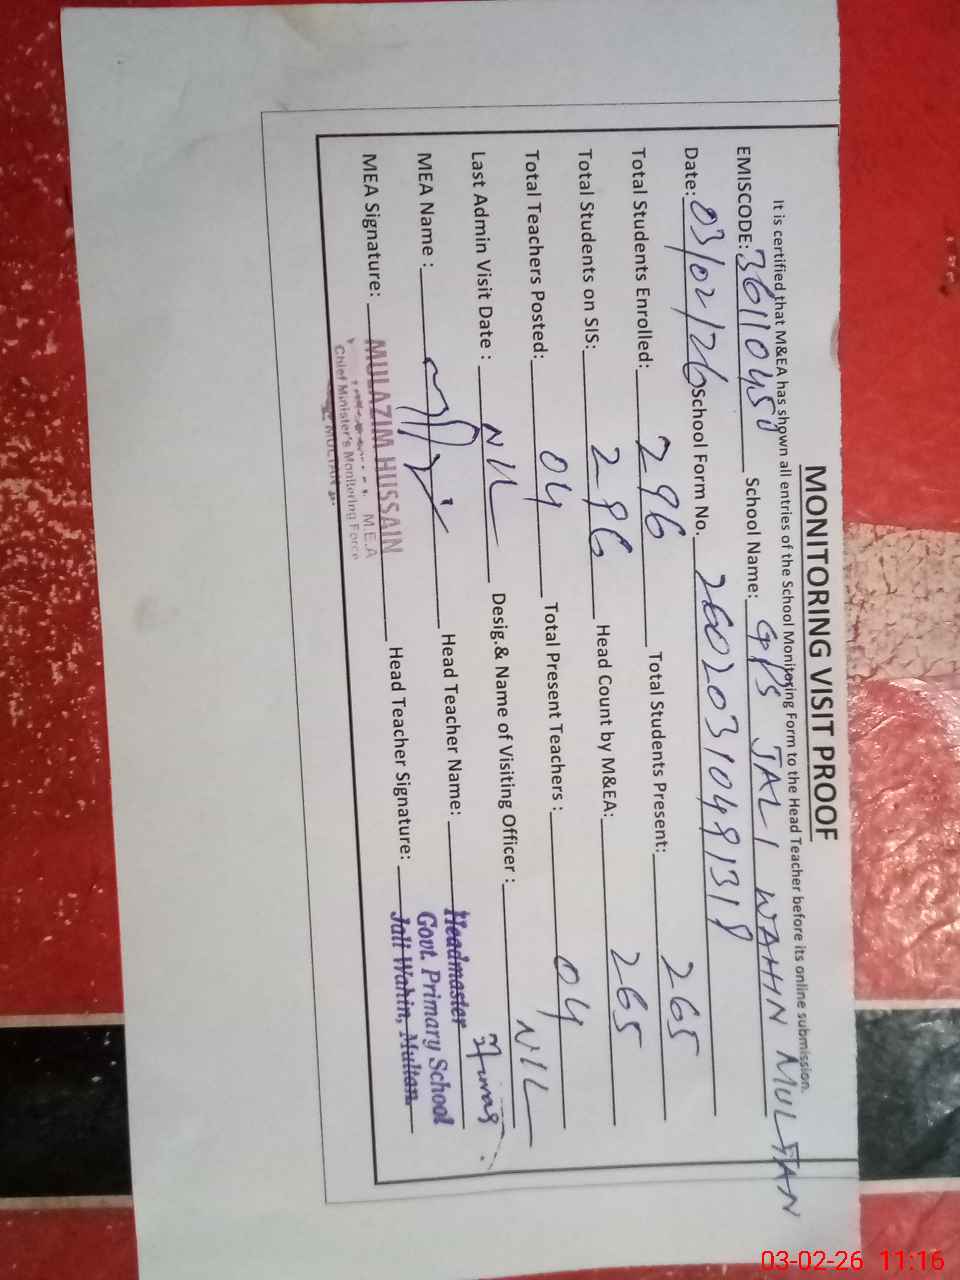 MONITORING VISIT PROOF
It is certified that M&EA has shown all entries of the School Monitoring Form to the Head Teacher before its online submission.
EMISCODE: 36110450 School Name: GPS JALI WAHIN MULTAN
Date: 03/02/26 School Form No. 26020310491318
Total Students Enrolled: 296 Total Students Present: 265
Total Students on SIS: 296 Head Count by M&EA: 265
Total Teachers Posted: 04 Total Present Teachers : 04
Last Admin Visit Date : NIL Desig.& Name of Visiting Officer : NIL
MEA Name : Head Teacher Name:
MEA Signature: Head Teacher Signature:
MULAZIM HUSSAIN
M.E.A
Chief Minister's Monitoring Force
MULTAN
Headmaster
Govt. Primary School
Jali Wahin, Multan.
03-02-26 11:16